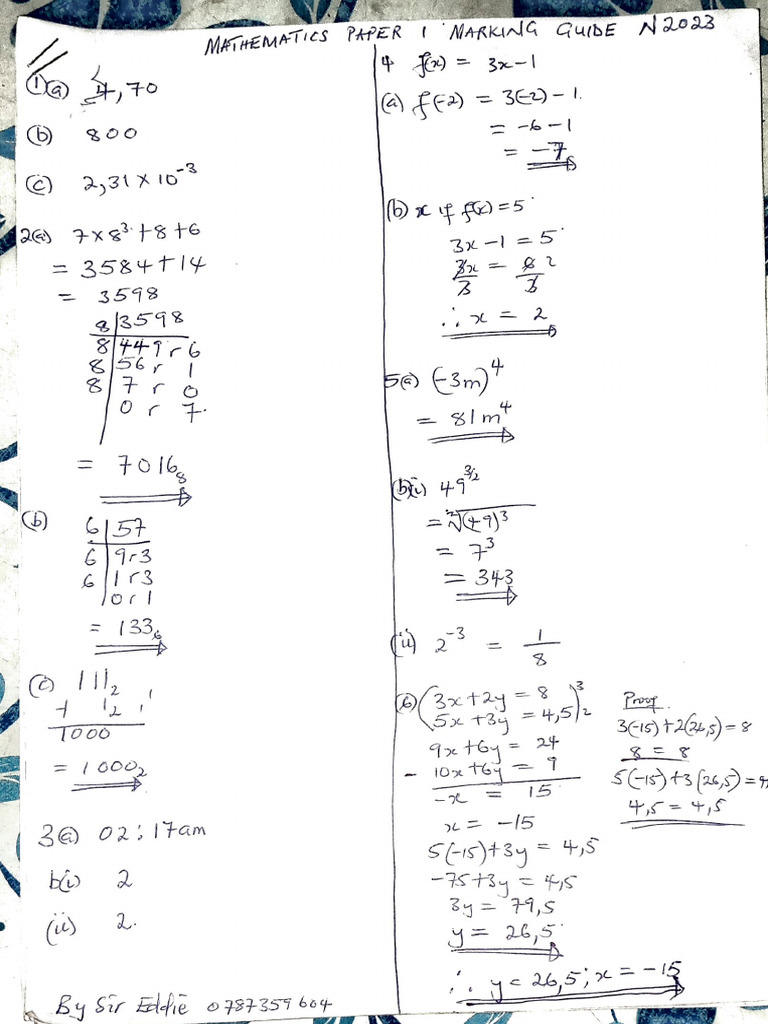 MATHEMATICS PAPER 1 MARKING GUIDE N2023
1(a) 4,70
(b) 800
(c) 2,31 × 10⁻³
2(a) 7×8³+8+6
= 3584+14
= 3598
8|3598
8|449 r 6
8|56 r 1
8|7 r 0
0 r 7.
= 7016₈
(b) 6|57
6|9 r 3
6|1 r 3
|0 r 1
= 133₆
(c) 111₂
+ 1₂
1000
= 1000₂
3(a) 02:17am
b(i) 2
(ii) 2.
By Sir Eddie 0787359604
4 f(x) = 3x-1
(a) f(-2) = 3(-2)-1
= -6-1
= -7
(b) x if f(x)=5
3x-1 = 5
3x = 6 2
3 3
∴ x = 2
5(a) (-3m)⁴
= 81m⁴
(b)(i) 49^3/2
= ²√(49)³
= 7³
= 343
(ii) 2⁻³ = 1/8
(6) (3x+2y = 8)3
(5x+3y = 4,5)2
9x+6y = 24
- 10x+6y = 9
-x = 15
x = -15
5(-15)+3y = 4,5
-75+3y = 4,5
3y = 79,5
y = 26,5
∴ y = 26,5; x = -15
Proof.
3(-15)+2(26,5)=8
8 = 8
5(-15)+3(26,5)=4
4,5 = 4,5